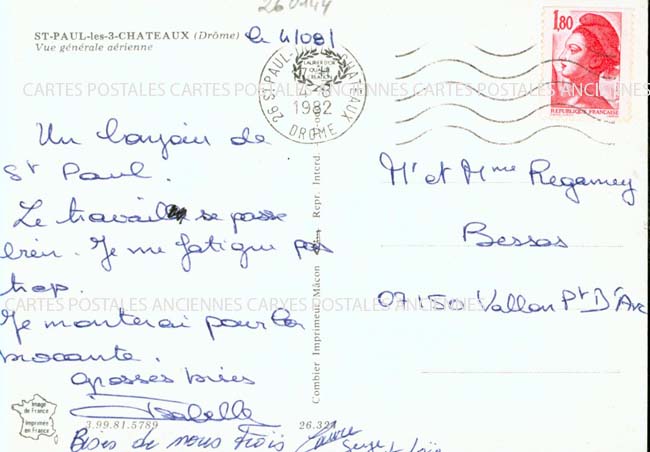 260144
ST-PAUL-les-3-CHATEAUX (Drôme)
Vue générale aérienne
le 4/08/
26 ST-PAUL-3-CHATEAUX
1982
DROME
1,80
REPUBLIQUE FRANÇAISE
CARTES POSTALES ANCIENNES CARTES POSTALES ANCIENNES
Un bonjour de
St Paul.
Le travail se passe
bien. Je me fatigue pas
trop.
Je monterai pour la
brocante.
Grosses bises
Isabelle
Bises de nous Trois Laure
Serge
Mr et Mme Regamey
Bessas
07150 Vallon Pt D'Arc
CARTES POSTALES ANCIENNES CARTES POSTALES ANCIENNES
Combier Imprimeur Mâcon
Repr. Interd.
Image
de France
Imprimée
en France
3.99.81.5789
26.324